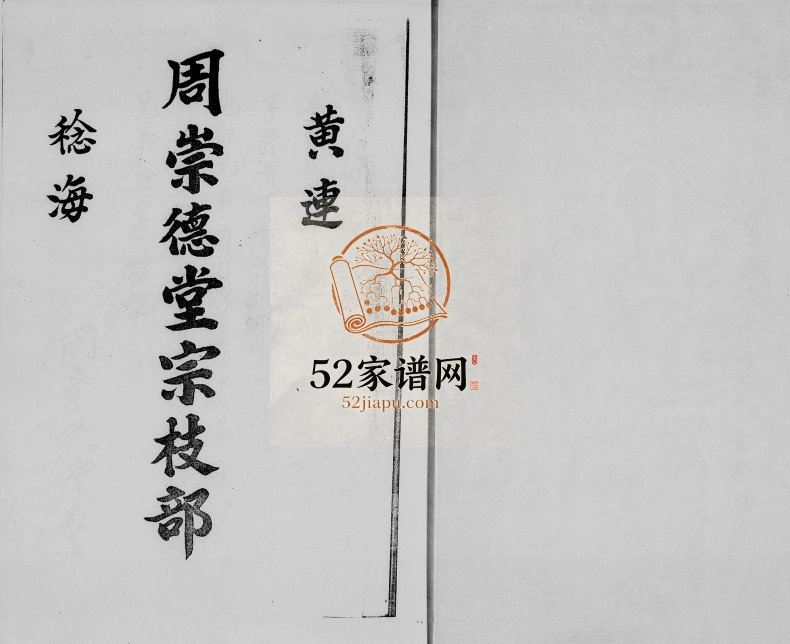 黄連
周崇德堂宗枝部
稔海
52家谱网
52jiapu.com